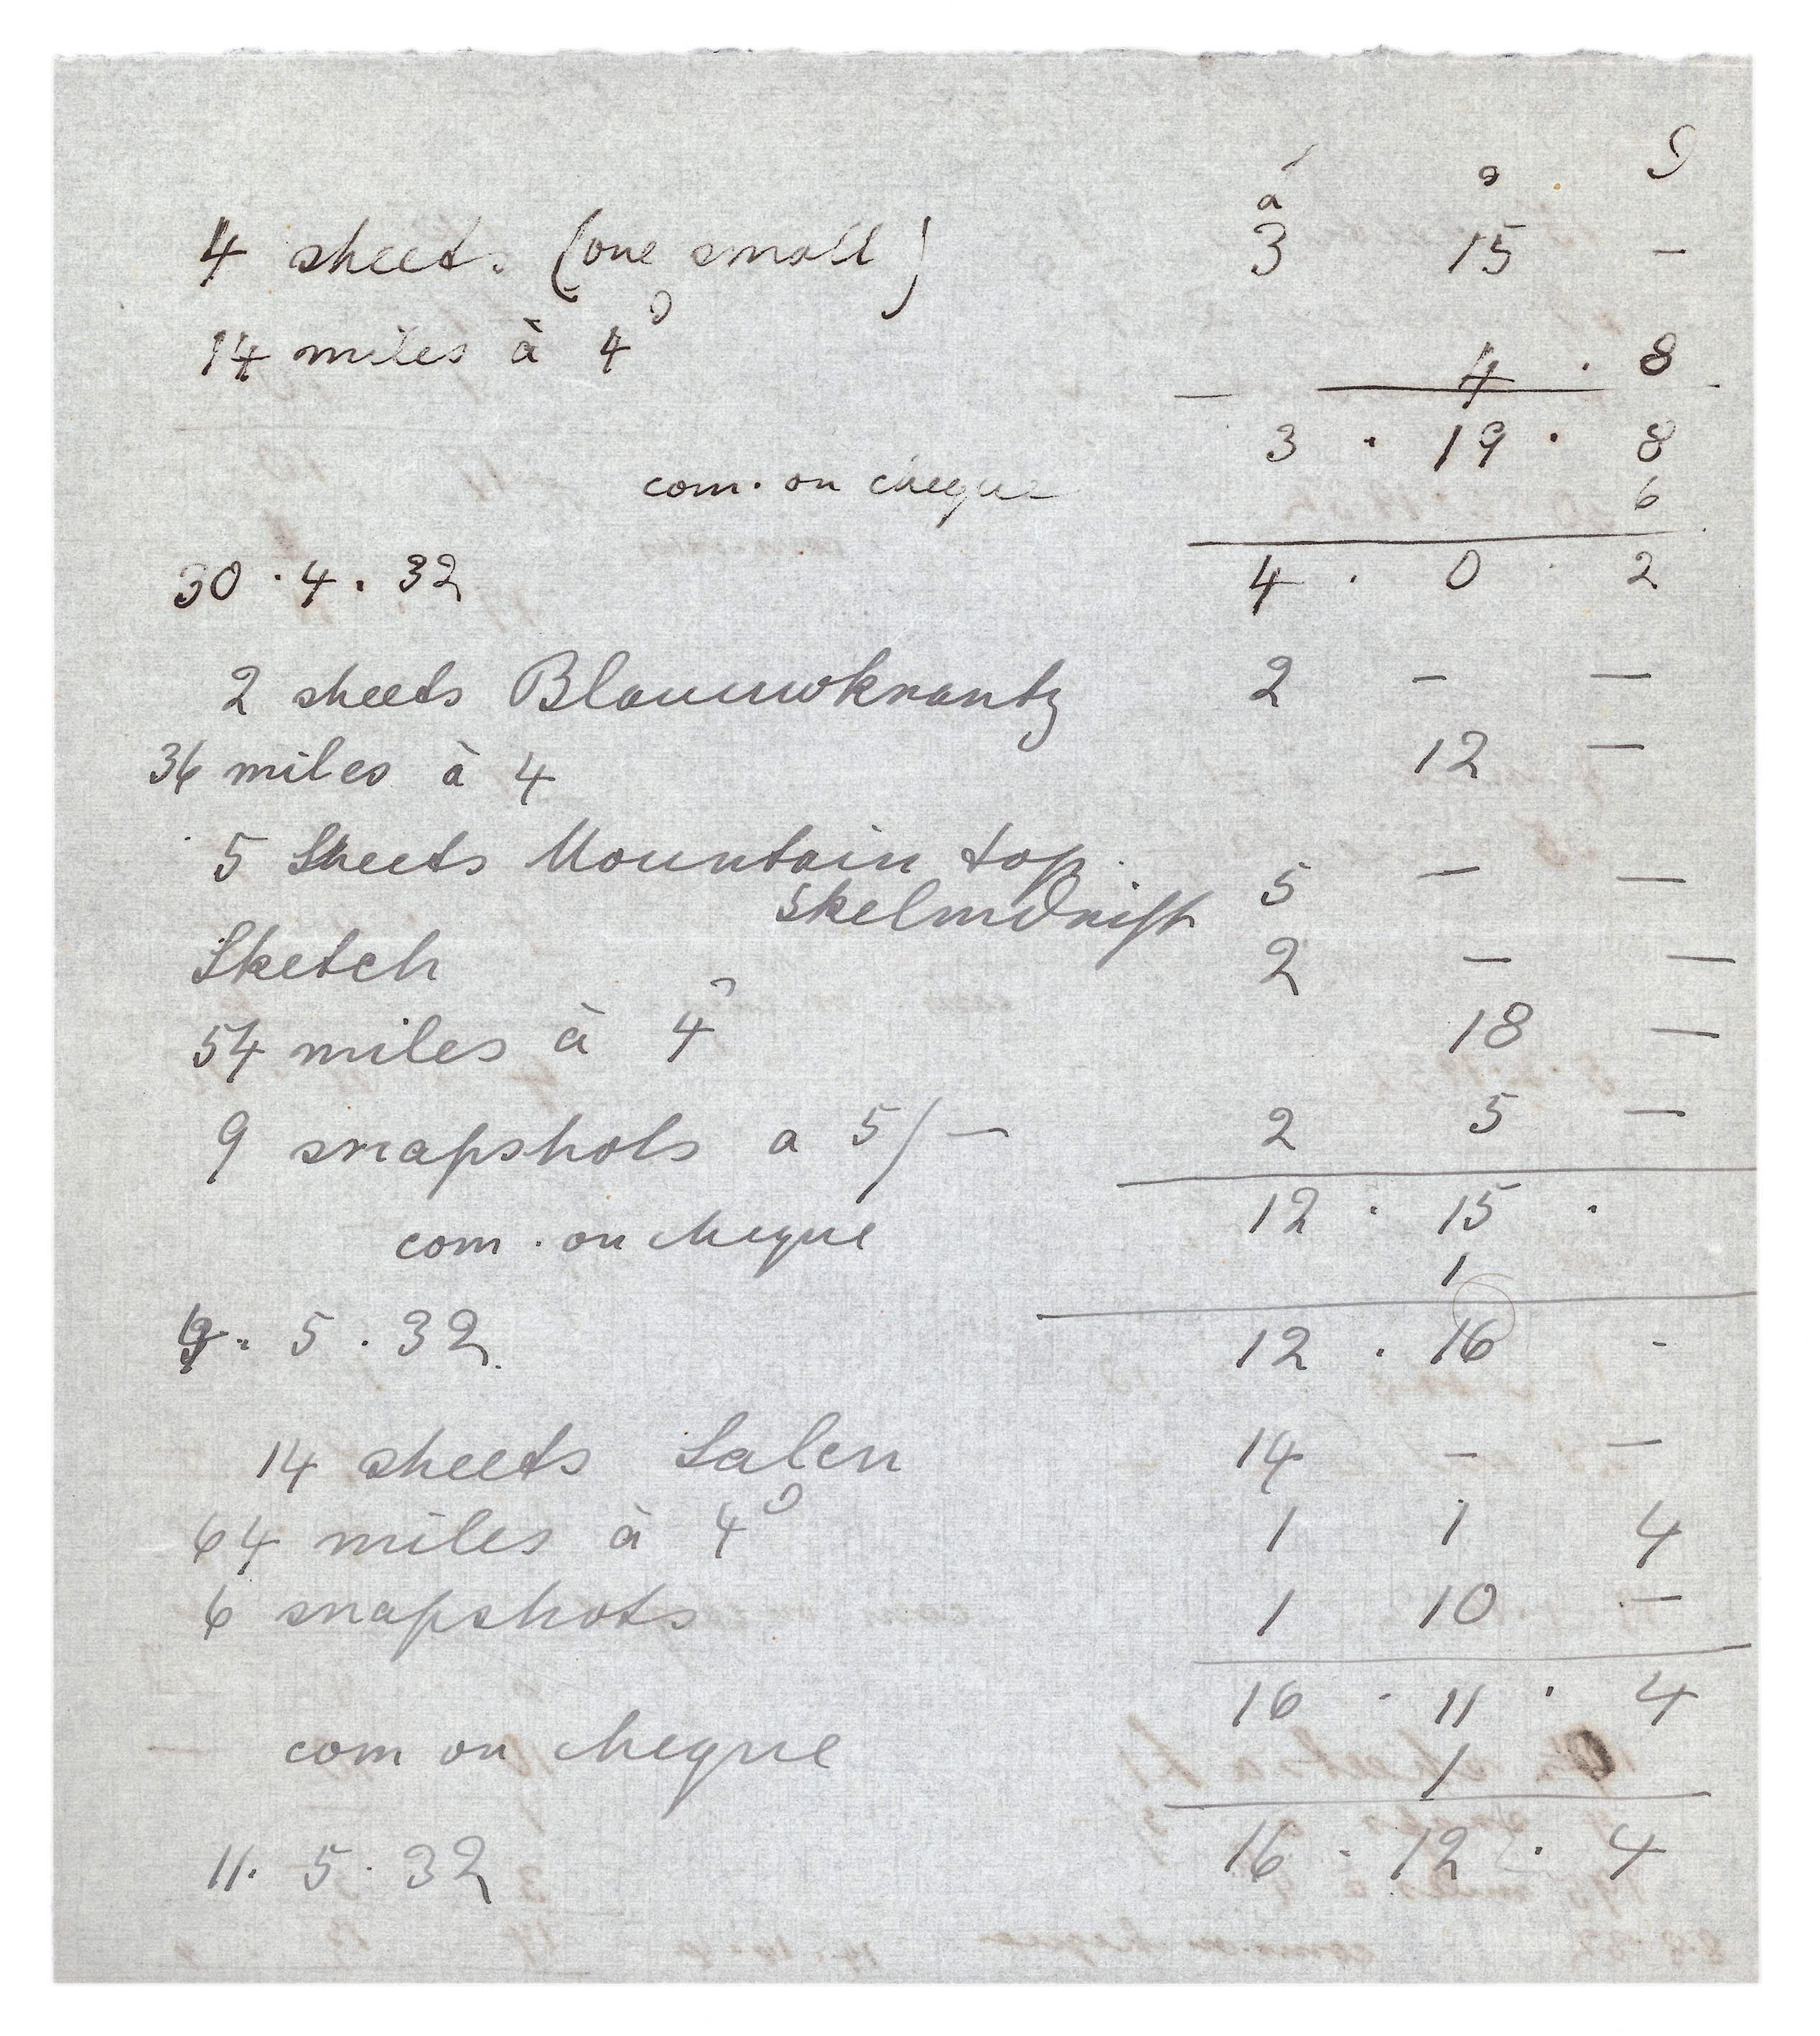 £ s d
4 sheets (one small) 3 15 -
14 miles à 4d 4 . 8
3 . 19 . 8
com. on cheque 6
30 . 4 . 32 4 . 0 . 2
2 sheets Blauuwkrantz 2 - -
36 miles à 4 12 -
5 Sheets Mountain top.
Skelmdrift 5 - -
Sketch 2 - -
54 miles à 4d 18 -
9 snapshots a 5/- 2 5 -
12 . 15 .
com. on cheque 1
9. 5 . 32. 12 . 16 -
14 sheets Salen 14 - -
64 miles à 4d 1 1 4
6 snapshots 1 10 -
16 . 11 . 4
com on cheque 1
11. 5. 32 16 . 12 . 4